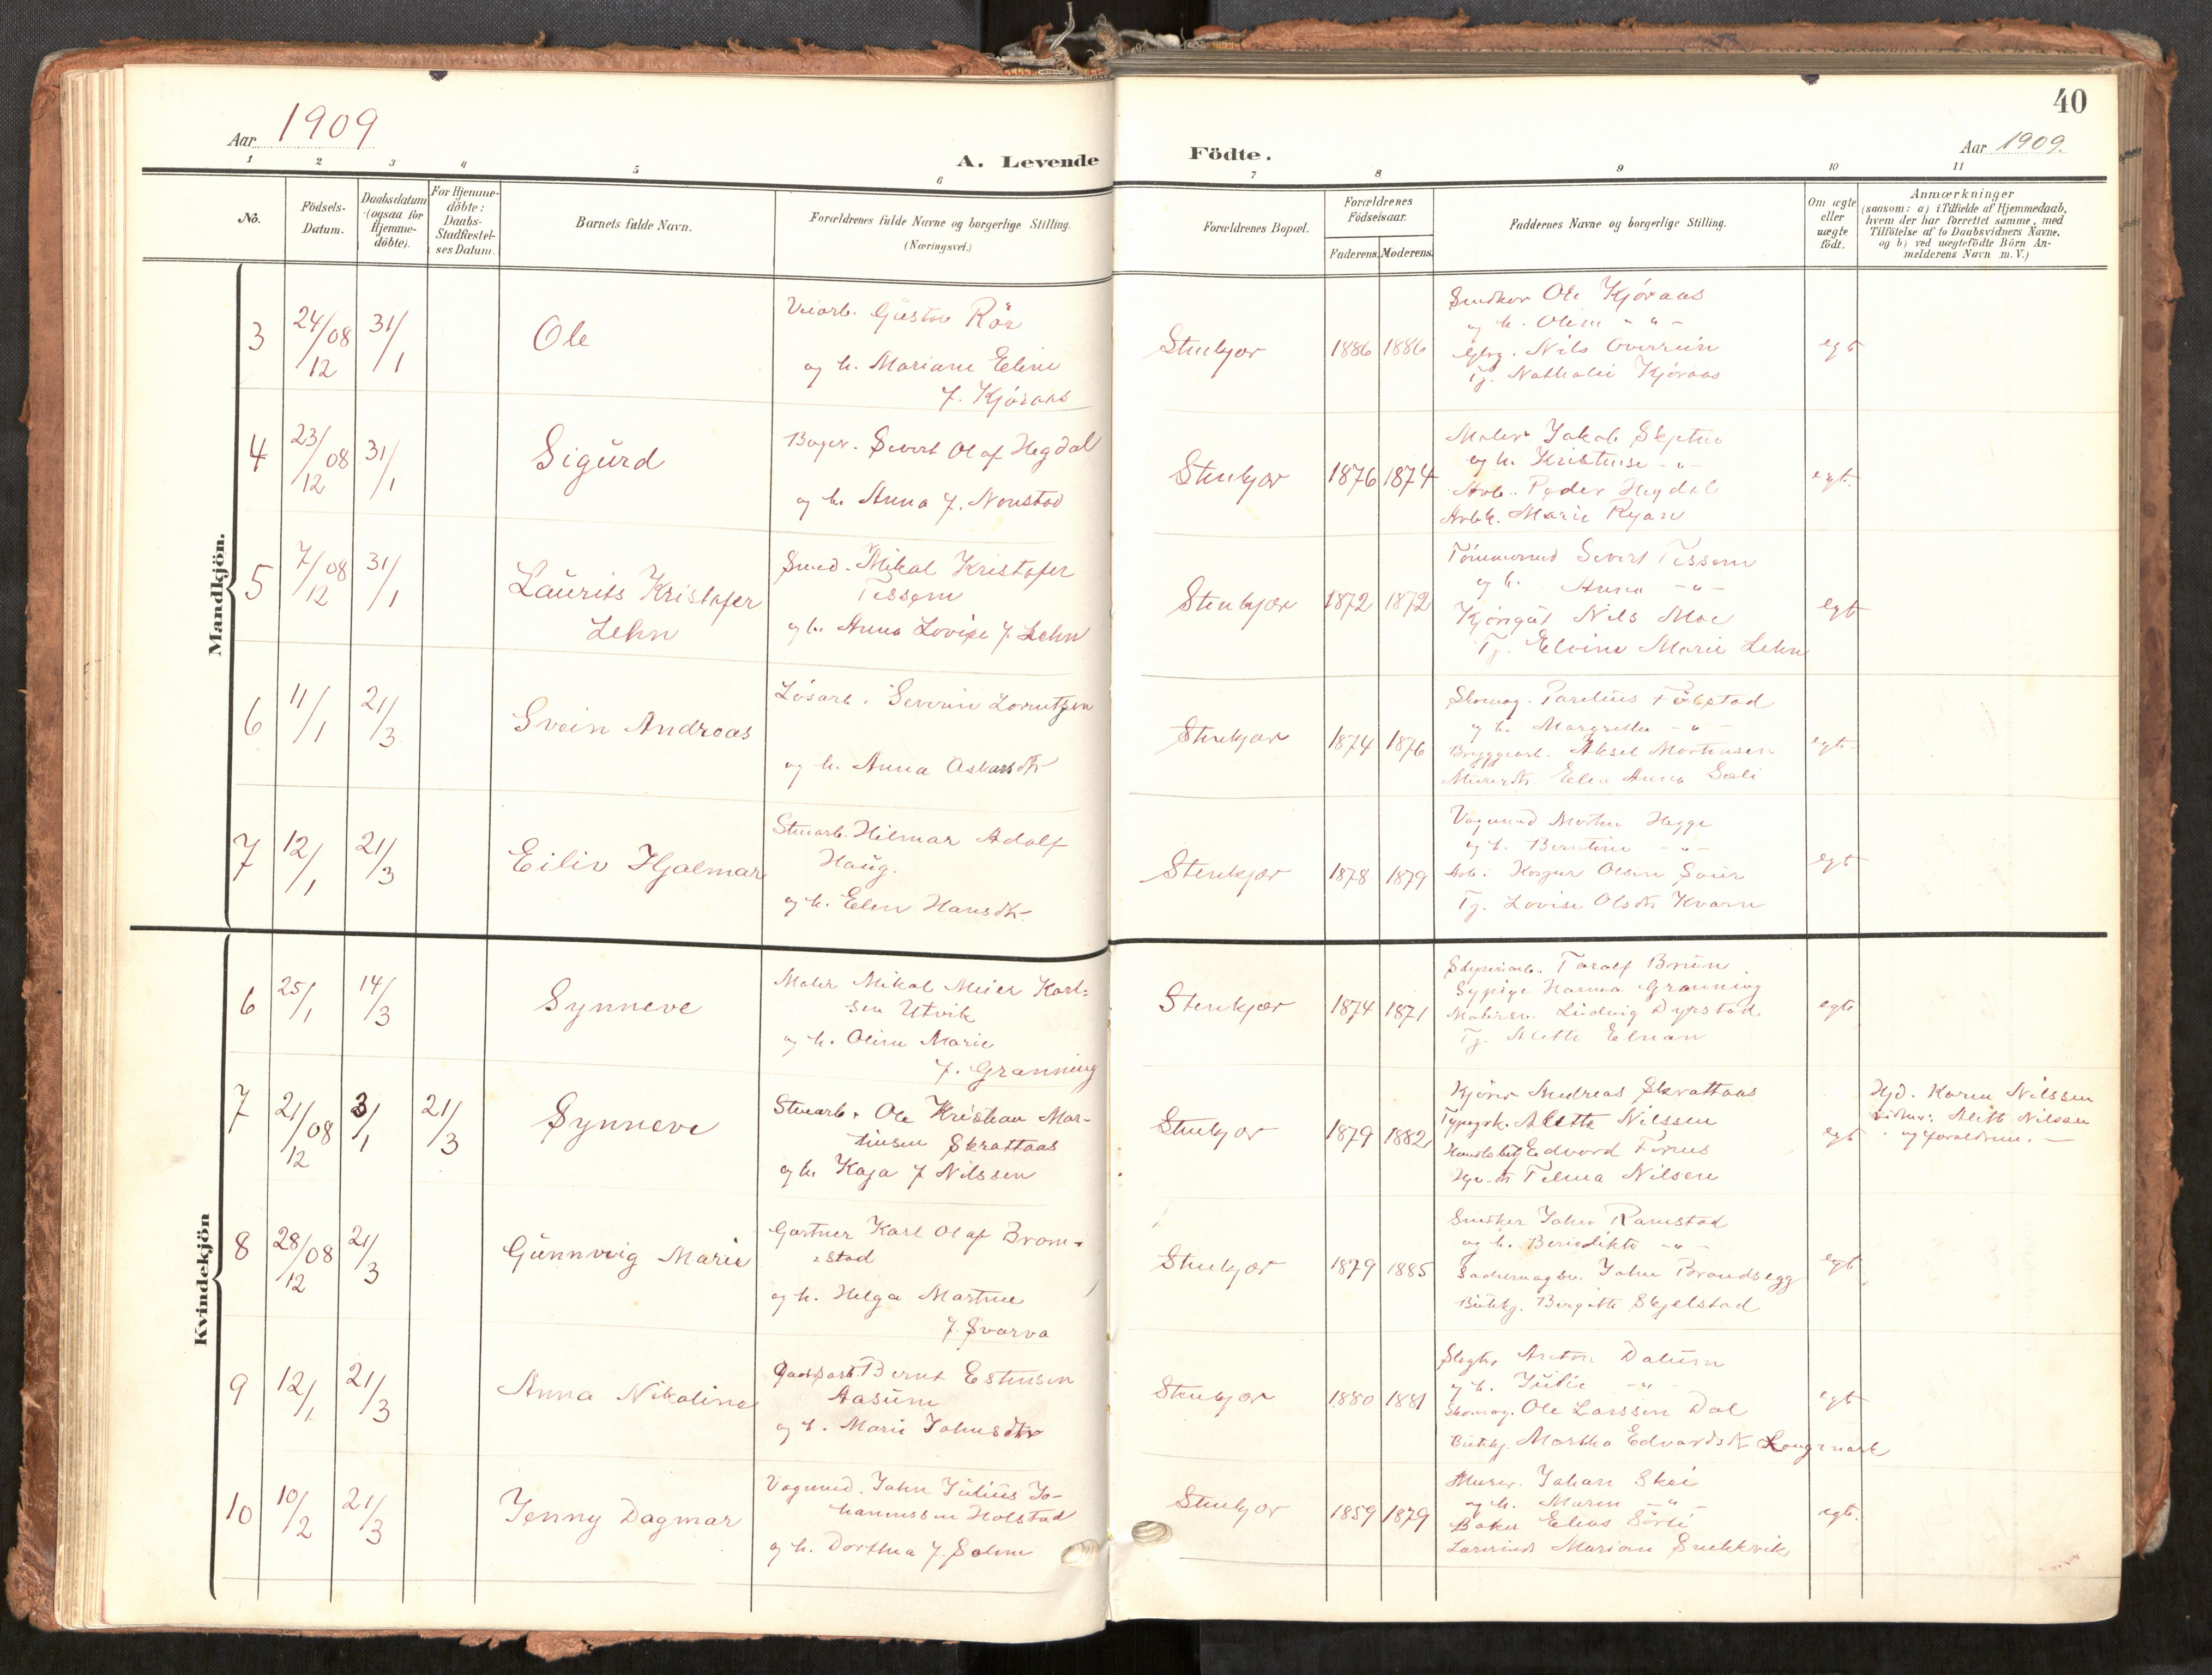 40
Aar 1909
Aar 1909.
A. Levende Födte.
1 2 3 4 5 6 7 8 9 10 11
No.
Födsels-
Datum.
Daabsdatum
(ogsaa for
Hjemme-
döbte).
For Hjemme-
döbte:
Daabs-
Stadfæstel-
ses Datum.
Barnets fulde Navn.
Forældrenes fulde Navne og borgerlige Stilling.
(Næringsvei.)
Forældrenes Bopæl.
Forældrenes
Födselsaar.
Faderens. Moderens.
Faddernes Navne og borgerlige Stilling.
Om ægte
eller
uægte
födt.
Anmærkninger
(saasom: a) i Tilfælde af Hjemmedaab,
hvem der har forrettet samme, med
Tilföielse af to Daabsvidners Navne,
og b) ved uægtefödte Börn An-
melderens Navn m. V.)
Mandkjön.
3
24/08
12
31/
1
Ole
Veiarb. Gustav
og h. Mariane Eline
f. Kjóraas
Stenkjær
1886 1886
Ole Kjóraas
og h. - " -
Nils Overrein
Tj. Nathalie Kjóraas
egt
4
23/08
12
31/
1
Sigurd
Bager. Sivert Olaf Hegdal
og h. Anna f. Nonstad
Stenkjær
1876 1874
Maler Jakob
og h. - " -
Arb. Peder Hegdal
Marie Ryan
egt.
5
7/08
12
31/
1
Laurits Kristofer
Lehn
Smed. Mikal Kristofer
Tessem
og h. Anna Lovise f. Lehn
Stenkjær
1872 1872
Tómmermd Sivert Tessem
og h. Anna - " -
Nils Moe
Tj. Marie Lehn
egt
6
11/
1
21/
3
Svein Andreas
Lósarb. Severin Lorentzen
og h. Anna Oskarsdtr
Stenkjær
1874 1876
Skomag. Parelius
og h. Margrethe - " -
Bryggearb. Aksel Mortensen
Murerdtr. Elen Anna
egt.
7
12/
1
21/
3
Eiliv Hjalmar
Stenarb. Hilmar Adolf
Haug.
og h. Elen Hansdtr.
Stenkjær
1878 1879
Vognmd Hegge
og h. Berntine - " -
Arb. Olsen
Tj. Lovise Olsdtr Kvarn
egt
Kvindekjön
6
25/
1
14/
3
Synneve
Maler Mikal Meier Karl-
sen Utvik
og h. Oline Marie
f. Granning
Stenkjær
1874 1871
Toralf Bruun.
Sypige Hanna Granning
Malersv. Ludvig Dyrstad.
Tj. Alette Elnan
egte
7
21/08
12
3/
1
21/
3
Synneve
Stenarb. Ole Kristian Mar-
tinsen Skrattaas
og h. Kaja f Nilssen
Stenkjær
1879 1882
Kjórer Andreas Skrattaas
Alette Nilssen
Edvard
Telma Nilsen
egt
Hjd. Karen Nilssen
Alett Nilsen
og forældrene. -
8
28/08
12
21/
3
Gunnvig Marie
Gartner Karl Olaf Brom-
stad
og h. Helga Martine
f. Svarva
Stenkjær
1879 1885
Snedker Johan Ramstad
og h. Benedikte - " -
Sadelmagsv. John Brandsegg
Butikj. Bergitte Skjelstad
egt
9
12/
1
21/
3
Anna Nikoline
Bernt Estensen
Aasum
og h. Marie Johnsdtr
Stenkjær
1880 1881
Slagter Anton Dalum
og h. Julie - " -
Skomag. Ole Larssen Dal
Butikj. Martha Edvardsdtr Langmark
egt
10
10/
2
21/
3
Jenny Dagmar
Vognmd. John Julius Jo-
hannessen Holstad
og h. Dorthea f. Salne
Stenkjær
1859 1879
Murer. Johan Skei
og h. Maren - " -
Baker Elias
Mariane Snekkvik
egt.